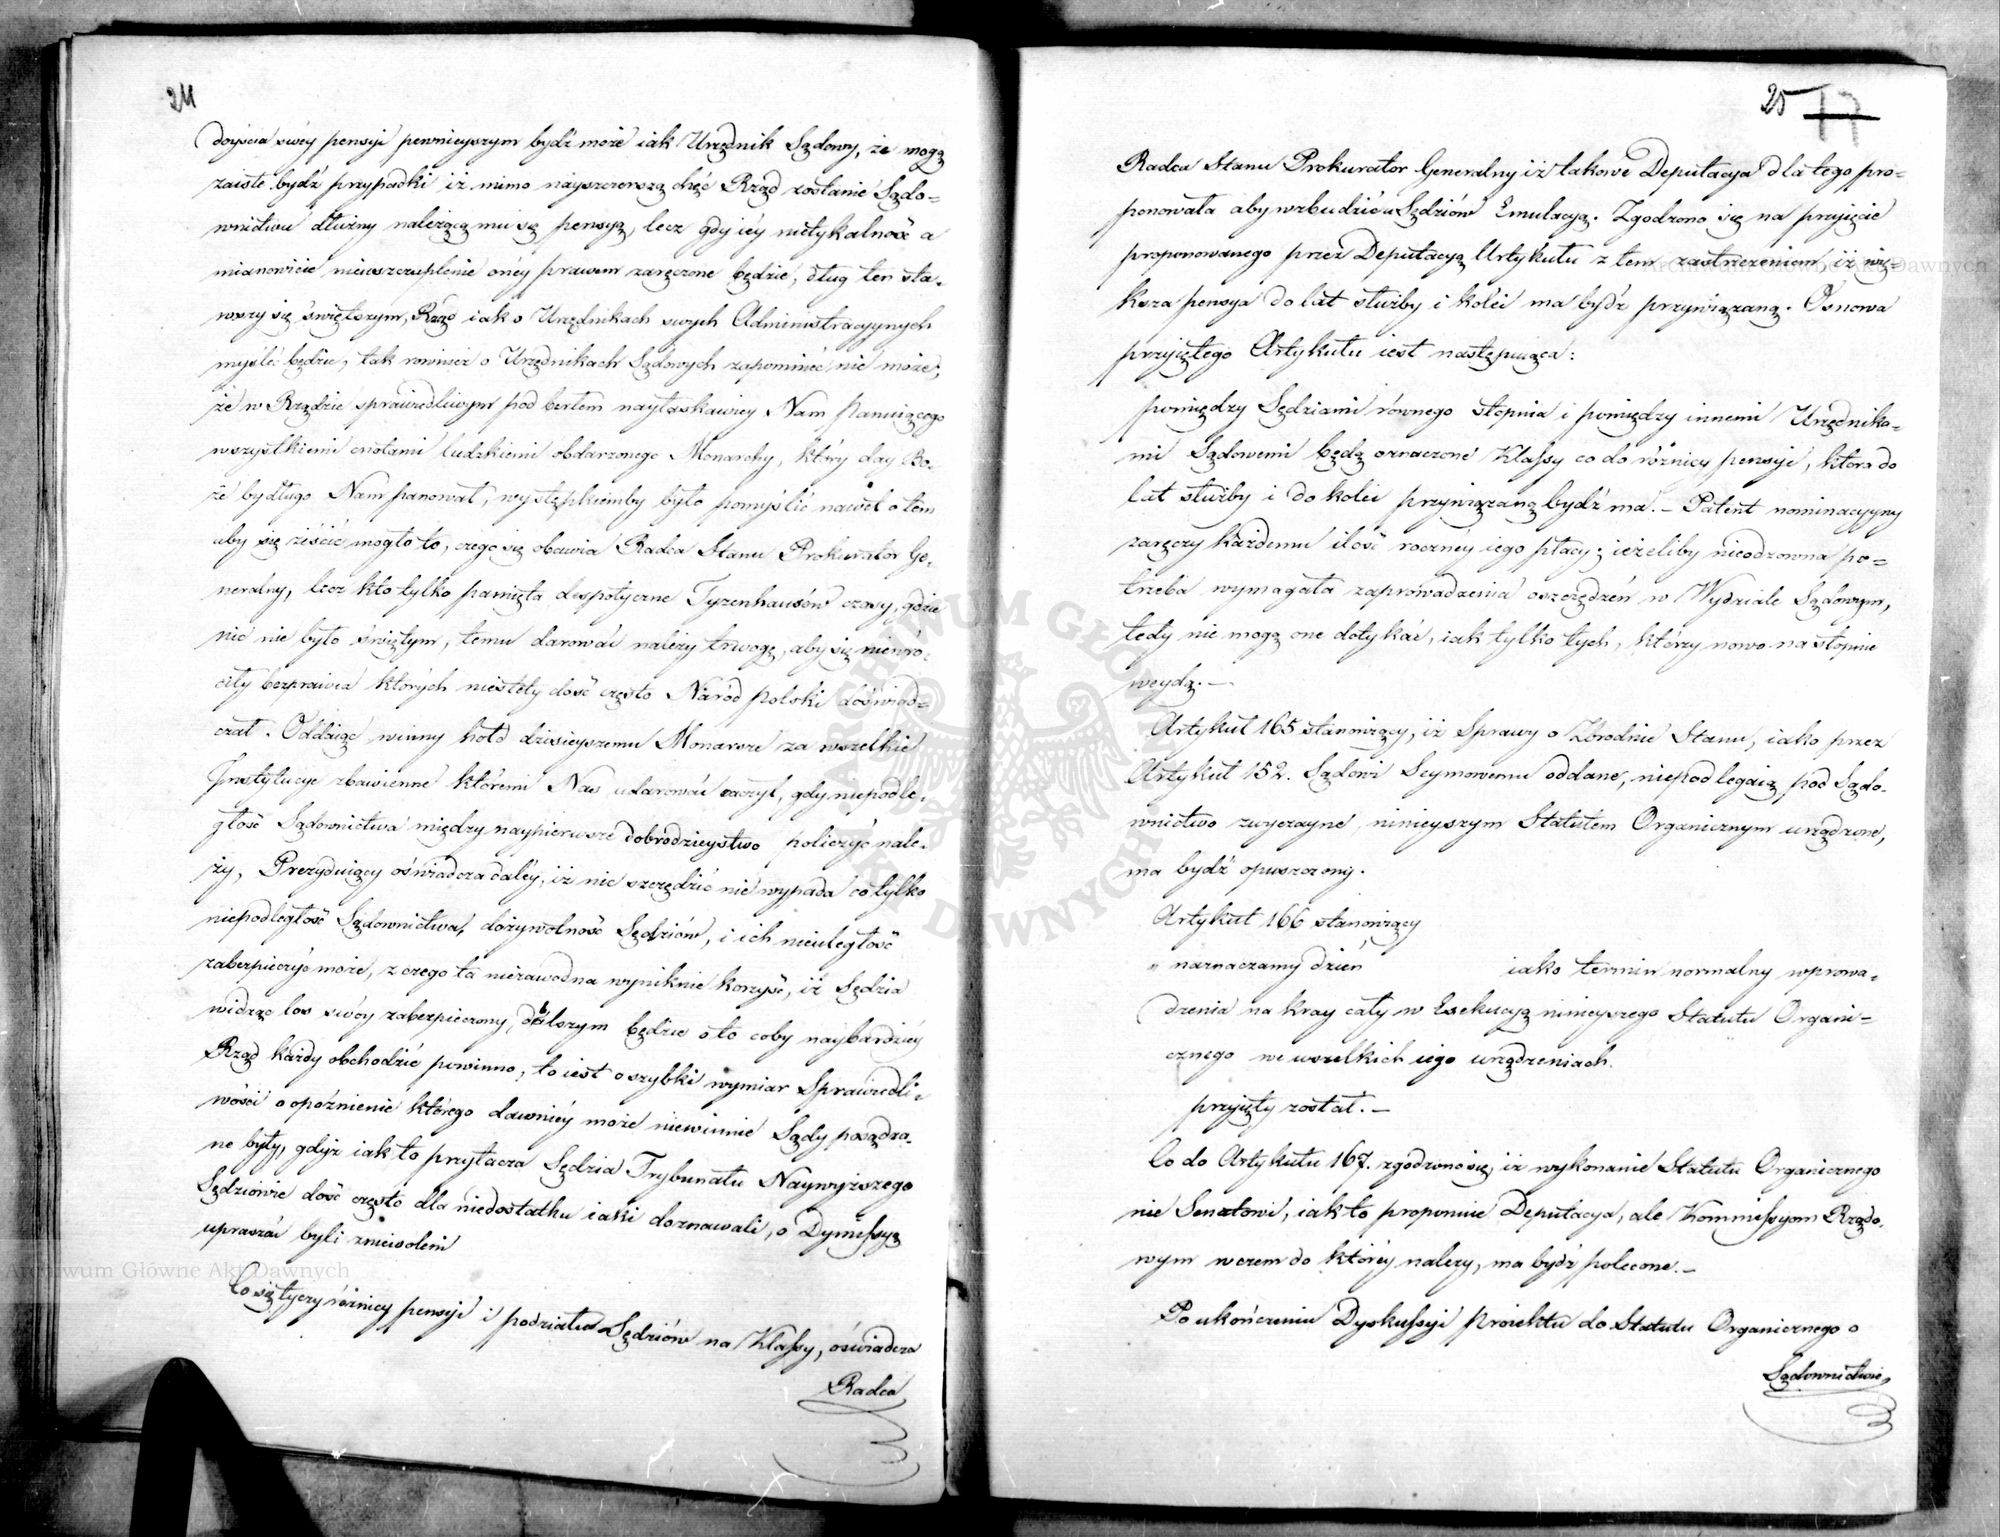 24
doyścia swey pensyi pewnieyszym bydź może iak Urzędnik Sądowy, że mogą
zaiste bydź przypadki iż mimo nayszczerszą chęć Rząd zostanie Sądo-
wnictwu dłużny należącą mu się pensyą, lecz gdy iéy nietykalność a
mianowicie nieuszczuplenie onéy prawem zaręczone będzie, dług ten sta-
wszy się świętszym, Rząd iak o Urzędnikach swych Administracyynych
myśléć będzie, tak rownież o Urzędnikach Sądowych zapomnieć nie może,
że w Rządzie sprawiedliwym pod berłem nayłaskawiey Nam Panuiącego
wszystkiemi cnotami ludzkiemi obdarzonego Monarchy, który day Bo-
że by długo Nam panował, występkiemby było pomyślić nawet o tem
aby się ziścić mogło to, czego się obawia Radca Stanu Prokurator Ge-
neralny, lecz kto tylko pamięta despotyczne Tyzenhauzów czasy, gdzie
nic nie było świętym, temu darować należy trwogę, aby się niewró-
ciły bezprawia których niestety dość często Naród polski doświad-
czał. Oddaiąc winny hołd dzisieyszemu Monarsze za wszelkie
Instytucye zbawienne któremi Nas udarować raczył, gdy niepodle-
głość Sądownictwa między naypierwsze dobrodzieystwo policzyć nale-
ży, Prezyduiący oświadcza daléy, iż nic szczędzić nie wypada co tylko
niepodległość Sądownictwa, dożywotność Sędziów, i ich nieuległość
zabezpieczyć może, z czego ta niezawodna wyniknie korzyść, iż Sędzia
widząc los swóy zabezpieczony, dbalszym będzie o to coby naybardziéy
Rząd każdy obchodzić powinno, to iest o szybki wymiar Sprawiedli-
wości o opóźnienie którego dawniéy może niewinnie Sądy posądza-
ne były, gdyż iak to przytacza Sędzia Trybunału Naywyższego
Sędziowie dość często dla niedostatku iaki doznawali, o Dymissyą
upraszać byli zniewoleni
Co się tyczy różnicy pensyi i podziału Sędziów na Klassy, oświadcza
Radca
25 17
Radca Stanu Prokurator Generalny iż takowe Deputacya dla tego pro-
ponowała aby wzbudzić u Sędziów Emulacyą. Zgodzono się na przyięcie
proponowanego przez Deputacyą Artykułu z tem zastrzeżeniem, iż wię-
ksza pensya do lat służby i koléi ma bydź przywiązaną. Osnowa
przyiętego Artykułu iest następuiąca:
pomiędzy Sędziami równego stopnia i pomiędzy innemi Urzędnika-
mi Sądowemi będą oznaczone Klassy co do różnicy pensyi, która do
lat służby i do koléi przywiązaną bydź ma. – Patent nominacyyny
zaręczy każdemu ilość roczney iego płacy; ieżeliby nieodzowna po-
trzeba wymagała zaprowadzenia oszczędzeń w Wydziale Sądowym,
tedy nie mogą one dotykać, iak tylko tych, którzy nowo na stopnie
weydą. –
Artykuł 165 stanowiący, iż Sprawy o Zbrodnie Stanu, iako przez
Artykuł 152. Sądowi Seymowemu oddane, niepodlegaią pod Sądo-
wnictwo zwyczayne ninieyszym Statutem Organicznym urządzone,
ma bydź opuszczony.
Artykuł 166 stanowiący
„ naznaczamy dzień iako termin normalny wprowa-
dzenia na kray cały w Exekucyą ninieyszego Statutu Organi-
cznego we wszelkich iego urządzeniach.
przyięty został. –
Co do Artykułu 167. zgodzono się, iż wykonanie Statutu Organicznego
nie Senatowi, iak to proponuie Deputacya, ale Kommissyom Rządo-
wym wczem do któréy należy, ma bydź polecone. –
Po ukończeniu Dyskussyi Proiektu do Statutu Organicznego o
Sądownictwie
Archiwum Główne Akt Dawnych
Archiwum Główne Akt Dawnych
ARCHIWUM GŁÓWNE AKT DAWNYCH